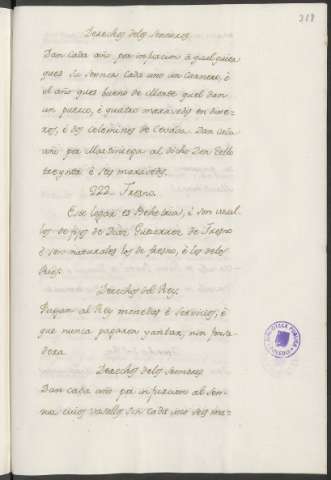 318
Derechos delos Sennores
Dan cada año por infurcion à qualquiera
ques su Sennor cada uno un Carnero, è
el año ques bueno de Monte quel dan
un puerco, è quatro maravedis en dine-
ros, è dos celemines de Cevada. Dan cada
año por Martiniega al dicho Don Tello
treynta è seis maravedis.
222. Fresno.
Este logar es Behetria, è son vasal
los de fijos de Diag Gutierrez de Fresno
è son naturales los de fresno, è los delos
Rios.
Derechos del Rey.
Pagan al Rey monedas è servicios, è
que nunca pagaron yantar, nin fonsa-
dera.
Derechos delos Sennores
Dan cada año por infurcion al Sen-
nor cuios vasallos son cada uno seis ma-
BIBLIOTECA PUBLICA
TOLEDO